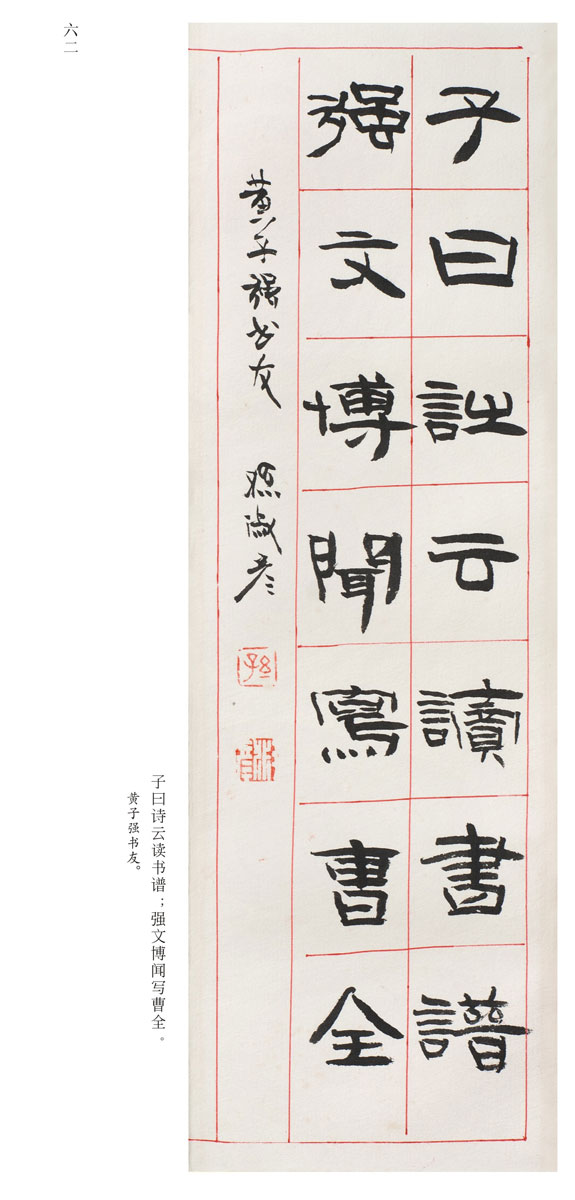 子曰詩云讀書譜
强文博聞寫曹全
黄子强书友 孫淑彦
孫
六二
子曰诗云读书谱；强文博闻写曹全。
黄子强书友。